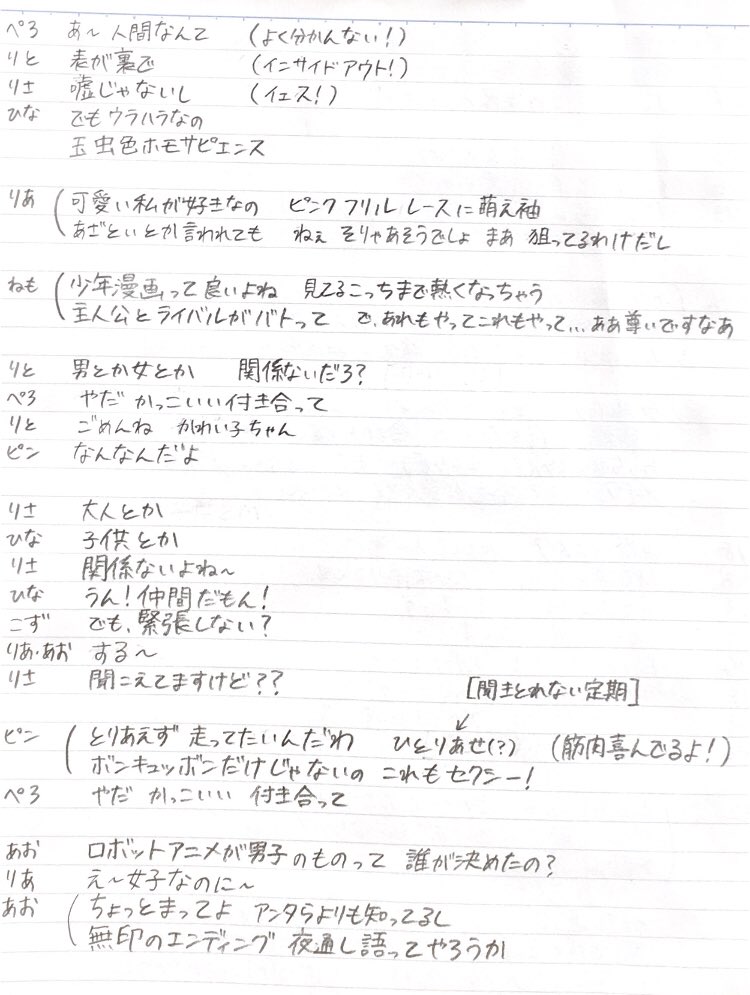 ぺろ あ～ 人間なんて (よく分かんない!)
りと 表が裏で (インサイドアウト!)
りさ 嘘じゃないし (イェス!)
ひな でもウラハラなの
玉虫色ホモサピエンス
りあ 可愛い私が好きなの ピンク フリル レースに萌え袖
あざといとか言われても ねぇ そりゃあそうでしょ まあ 狙ってるわけだし
ねも 少年漫画って良いよね 見てるこっちまで熱くなっちゃう
主人公とライバルがバトって で、あれもやってこれもやって…ああ尊いですなあ
りと 男とか女とか 関係ないだろ?
ぺろ やだ かっこいい付き合って
りと ごめんね かわい子ちゃん
ピン なんなんだよ
りさ 大人とか
ひな 子供とか
りさ 関係ないよね～
ひな うん!仲間だもん!
こず でも、緊張しない?
りあ・あお する～
りさ 聞こえてますけど??
[聞きとれない定期]
↙
ピン とりあえず 走ってたいんだわ ひとりあせ(?) (筋肉喜んでるよ!)
ボンキュッボンだけじゃないの これもセクシー!
ぺろ やだ かっこいい 付き合って
あお ロボットアニメが男子のものって 誰が決めたの?
りあ え～女子なのに～
あお ちょっとまってよ アンタらよりも知ってるし
無印のエンディング 夜通し語ってやろうか